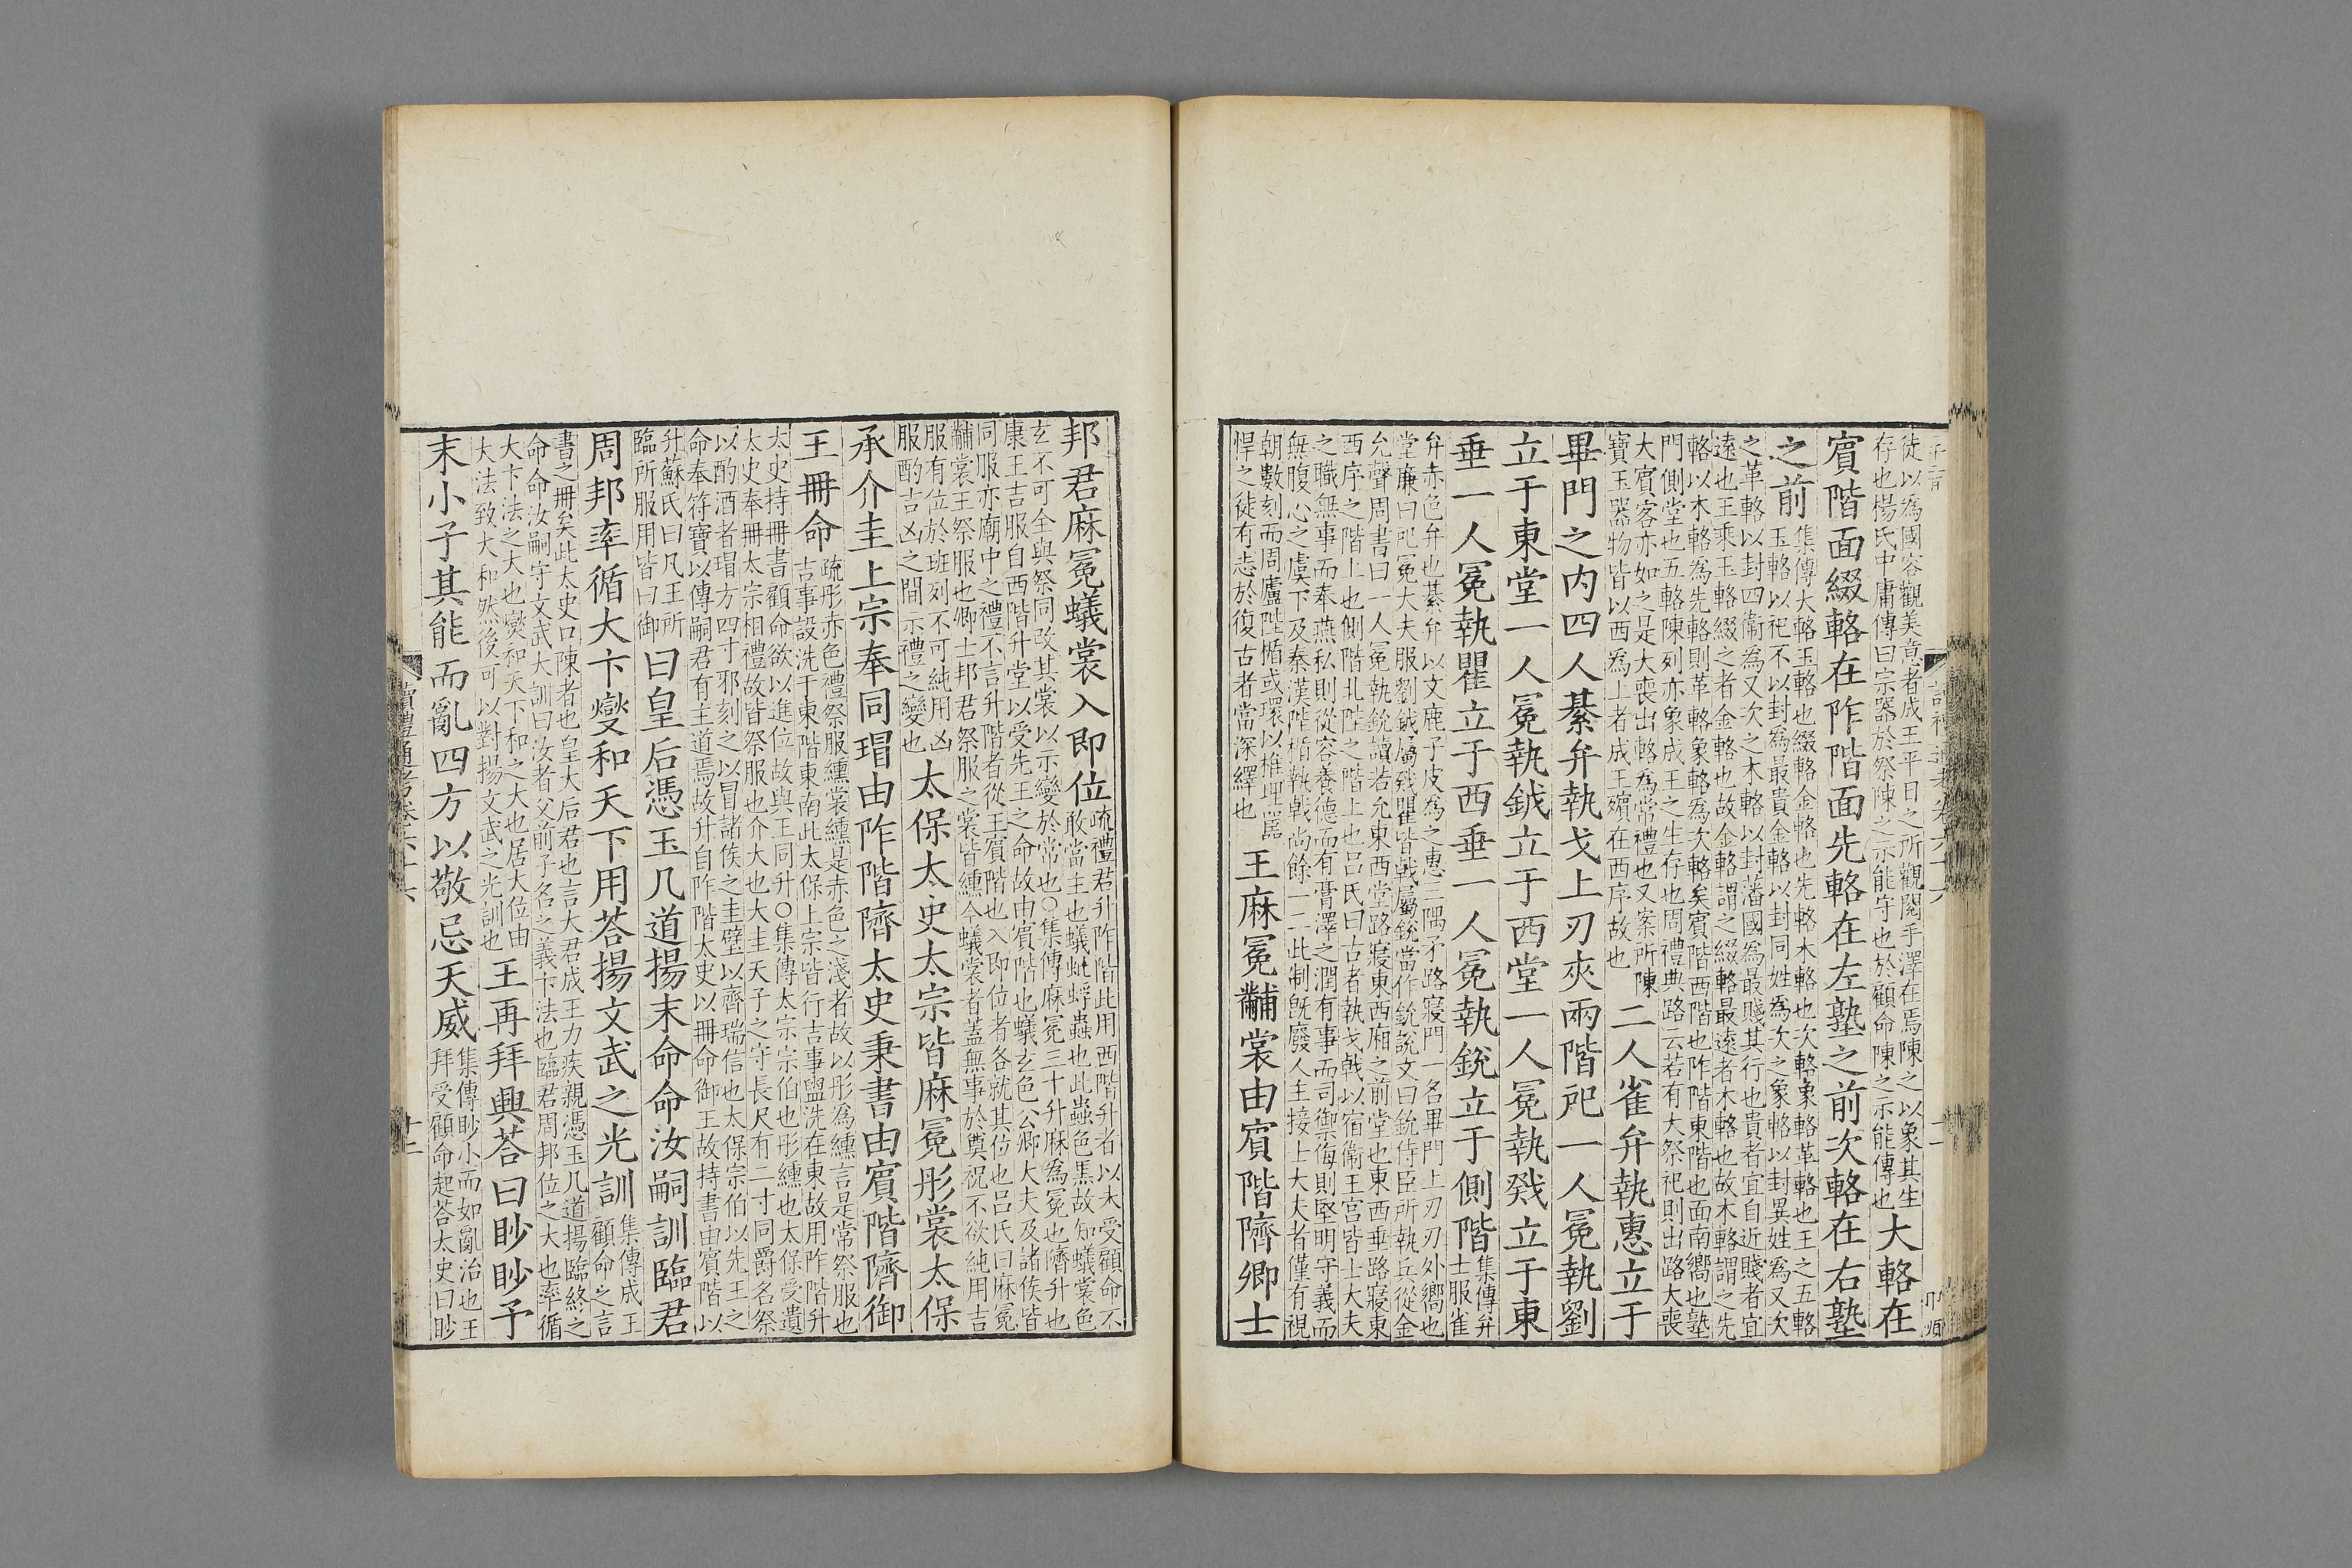 徒以為國容觀美意者成王平日之所觀閱手澤在焉陳之以象其生
存也楊氏中庸傳曰宗器於祭陳之示能守也於顧命陳之示能傳也
大輅在
賓階面綴輅在阼階面先輅在左塾之前次輅在右塾
之前
集傳大輅玉輅也綴輅金輅也先輅木輅也次輅象輅革輅也王之五輅
玉輅以祀不以封為最貴金輅以封同姓為次之象輅以封異姓為又次
之革輅以封四衞為又次之木輅以封藩國為最賤其行也貴者宜自近賤者宜
遠也王乘玉輅綴之者金輅也故金輅謂之綴輅最遠者木輅也故木輅謂之先
輅以木輅為先輅則革輅象輅為次輅矣賓階西階也阼階東階也面南嚮也塾
門側堂也五輅陳列亦象成王之生存也周禮典路云若有大祭祀則出路大喪
大賓客亦如之是大喪出輅為常禮也又案所陳
寶玉器物皆以西為上者成王殯在西序故也
二人雀弁執惠立于
畢門之内四人綦弁執戈上刃夾兩階戺一人冕執劉
立于東堂一人冕執鉞立于西堂一人冕執戣立于東
垂一人冕執瞿立于西垂一人冕執銳立于側階
集傳弁
士服雀
弁赤色弁也綦弁以文鹿子皮為之惠三隅矛路寢門一名畢門上刃刃外嚮也
堂廉曰戺冕大夫服劉鉞屬戣瞿皆戟屬銳當作鈗說文曰鈗侍臣所執兵從金
允聲周書曰一人冕執鈗讀若允東西堂路寢東西廂之前堂也東西垂路寢東
西序之階上也側階北陛之階上也呂氏曰古者執戈戟以宿衞王宮皆士大夫
之職無事而奉燕私則從容養德而有膏澤之潤有事而司禦侮則堅明守義而
無腹心之虞下及秦漢陛楯執戟尚餘一二此制旣廢人主接士大夫者僅有視
朝數刻而周廬陛楯或環以椎埋嚚
悍之徒有志於復古者當深繹也
王麻冕黼裳由賓階隮卿士
邦君麻冕蟻裳入即位
疏禮君升阼階此用西階升者以未受顧命不
敢當主也蟻蚍蜉蟲也此蟲色黑故知蟻裳色
玄不可全與祭同改其裳以示變於常也○集傳麻冕三十升麻為冕也隮升也
康王吉服自西階升堂以受先王之命故由賓階也蟻玄色公卿大夫及諸侯皆
同服亦廟中之禮不言升階者從王賓階也入即位者各就其位也呂氏曰麻冕
黼裳王祭服也卿士邦君祭服之裳皆纁今蟻裳者蓋無事於奠祝不欲純用吉
服有位於班列不可純用凶
服酌吉凶之間示禮之變也
太保太史太宗皆麻冕彤裳太保
承介圭上宗奉同瑁由阼階隮太史秉書由賓階隮御
王冊命
疏彤赤色禮祭服纁裳纁是赤色之淺者故以彤為纁言是常祭服也
吉事設洗于東階東南此太保上宗皆行吉事盥洗在東故用阼階升
太史持冊書顧命欲以進位故與王同升○集傳太宗宗伯也彤纁也太保受遺
太史奉冊太宗相禮故皆祭服也介大也大圭天子之守長尺有二寸同爵名祭
以酌酒者瑁方四寸邪刻之以冒諸侯之圭璧以齊瑞信也太保宗伯以先王之
命奉符寶以傳嗣君有主道焉故升自阼階太史以冊命御王故持書由賓階以
升蘇氏曰凡王所
臨所服用皆曰御
曰皇后憑玉几道揚末命命汝嗣訓臨君
周邦率循大卞燮和天下用荅揚文武之光訓
集傳成王
顧命之言
書之冊矣此太史口陳者也皇大后君也言大君成王力疾親憑玉几道揚臨終之
命命汝嗣守文武大訓曰汝者父前子名之義卞法也臨君周邦位之大也率循
大卞法之大也燮和天下和之大也居大位由
大法致大和然後可以對揚文武之光訓也
王再拜興荅曰眇眇予
末小子其能而亂四方以敬忌天威
集傳眇小而如亂治也王
拜受顧命起荅太史曰眇
讀禮通考卷六十六
十二